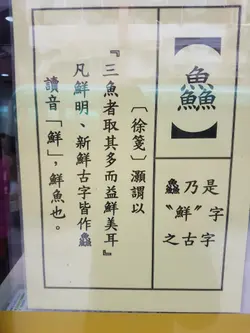 【鱻】
鱻乃是
“鮮”字
之古字
〔徐箋〕灝謂以
『三魚者取其多而益鮮美耳』
凡鮮明、新鮮古字皆作鱻
讀音「鮮」，鮮魚也。